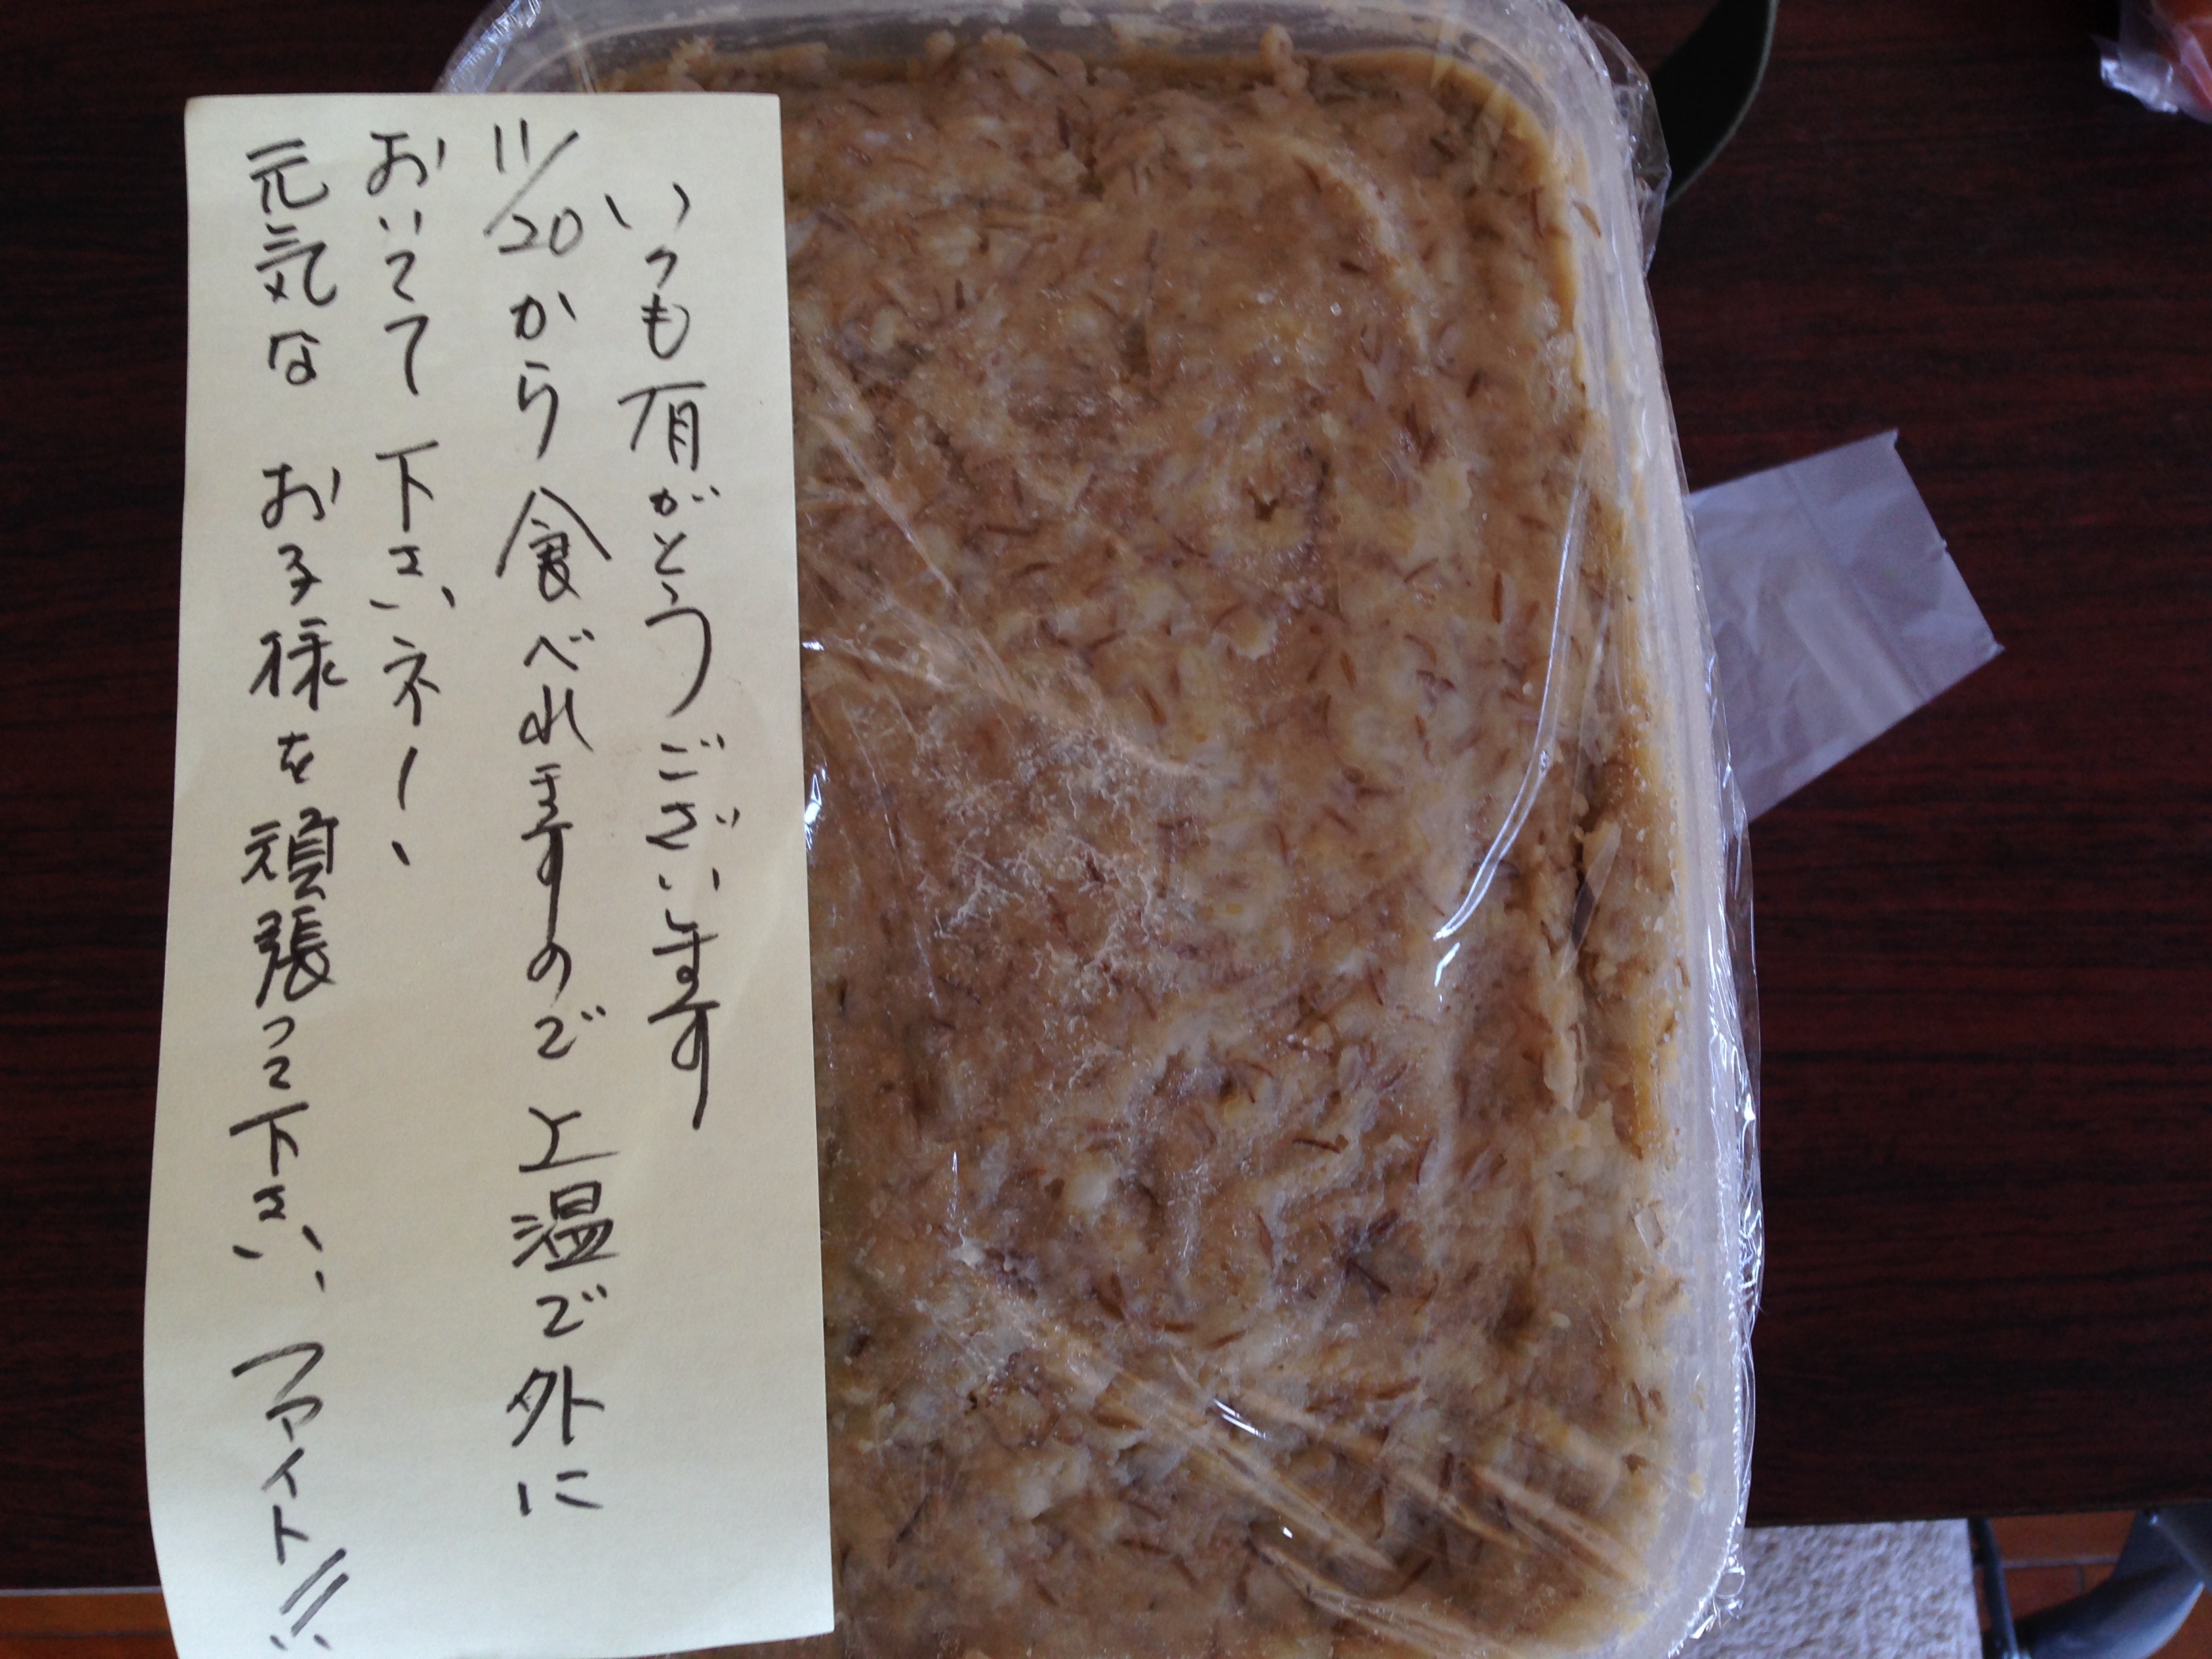 いつも有がとうございます
11/20から食べれますので上温で外に
おいてて下さいネー、
元気なお子様を頑張って下さい、ファイト!!